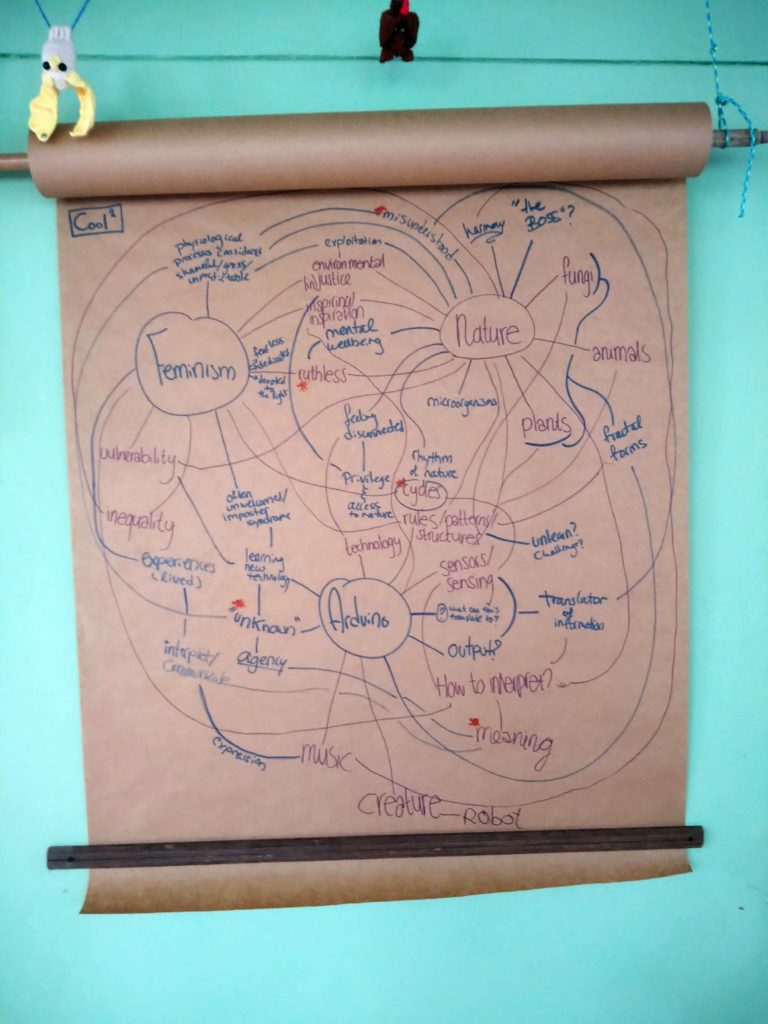 Cool²
*misunderstood
harmony
"the
BOSS"?
physiological
shameful/gross/
exploitation
environmental
(in)justice
inspiring/
inspiration
mental
wellbeing
Nature
fungi
animals
Feminism
fearless
dedicated
devoted
to
the fight
ruthless
*
microorganisms
plants
fractal
forms
feeling
disconnected
vulnerability
rhythm
of nature
*cycles
Privilege
&
access
to nature
often
unwelcomed/
imposter
syndrome
inequality
rules/patterns/
structures
unlearn?
challenge?
technology
experiences
(lived)
learning
new
technology
sensors/
sensing
*
"unknown"
Arduino
? what can this
translate to?
translator
of
information
interpret/
communicate
agency
output?
How to interpret?
*meaning
expression
music
creature
ROBOT